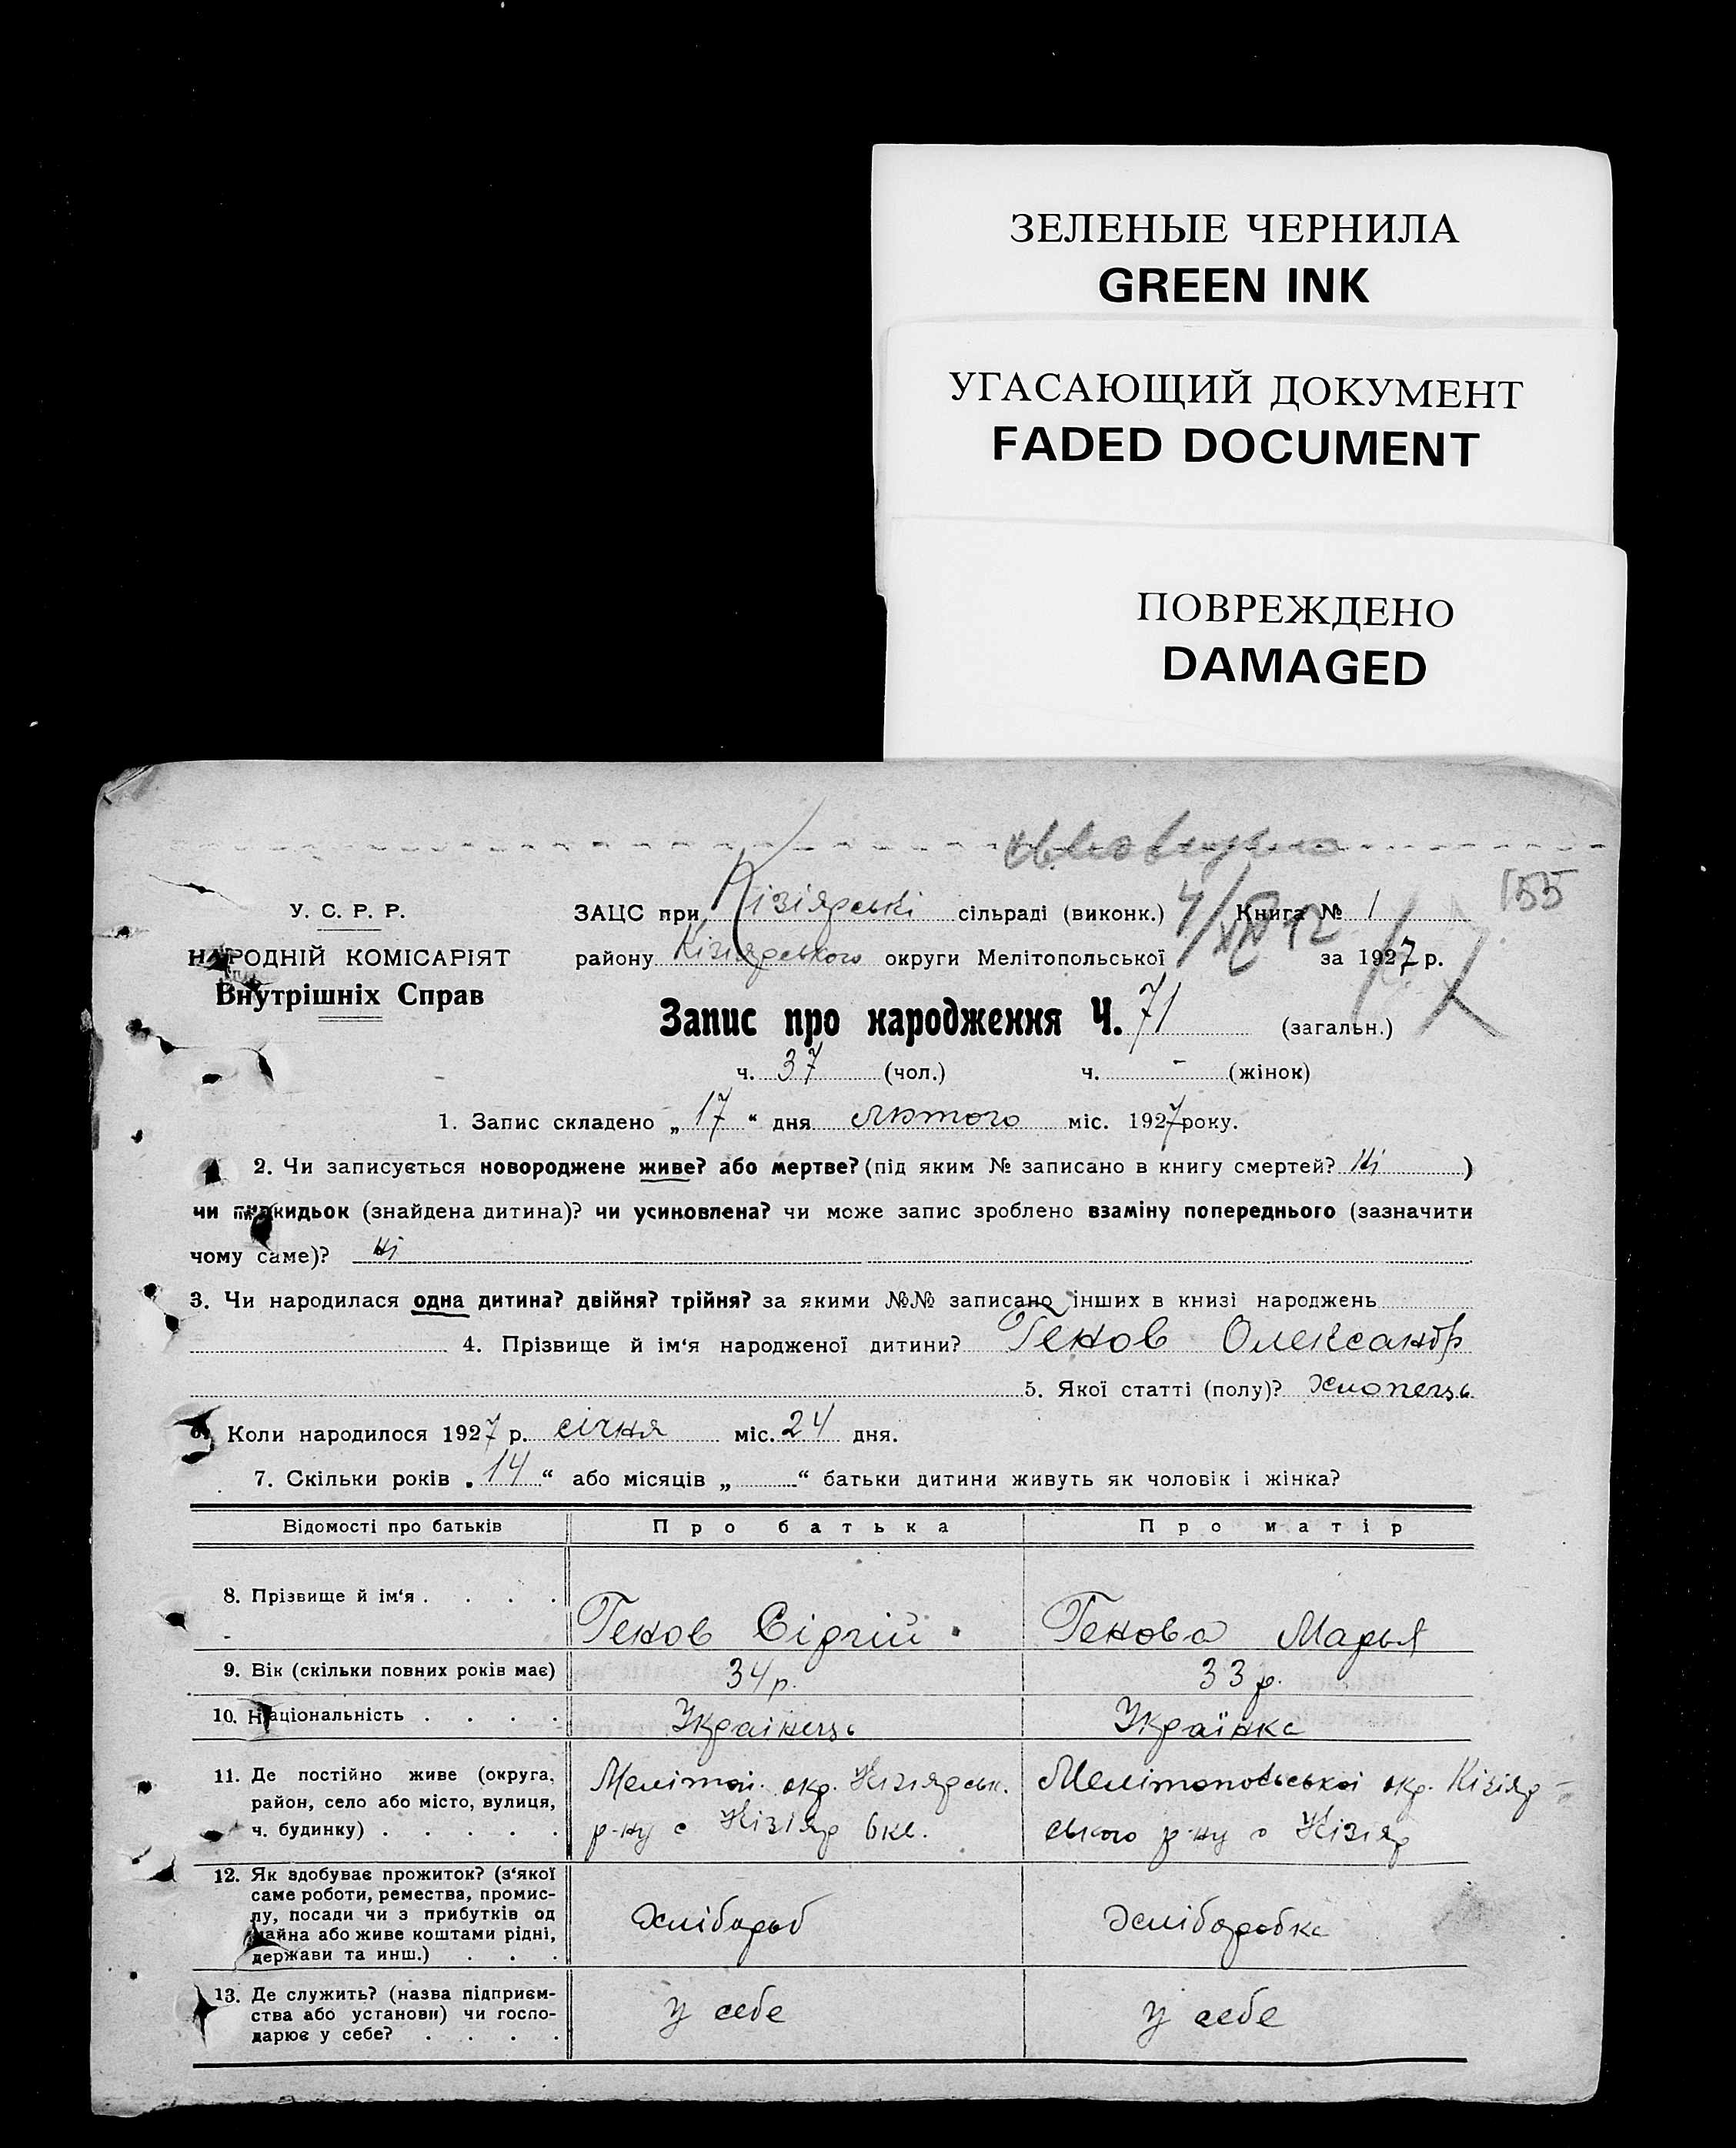 ЗЕЛЕНЫЕ ЧЕРНИЛА
GREEN INK
УГАСАЮЩИЙ ДОКУМЕНТ
FADED DOCUMENT
ПОВРЕЖДЕНО
DAMAGED
155
У. С. Р. Р.
НАРОДНІЙ КОМІСАРІЯТ
Внутрішніх Справ
ЗАЦС при Кізіярські сільраді (виконк.) Книга № 1
району Кізіярського округи Мелітопольської за 1927 р.
Запис про народження Ч. 71 (загальн.)
ч. 37 (чол.) ч. - (жінок)
1. Запис складено „17“ дня лютого міс. 1927 року.
2. Чи записується новороджене живе? або мертве? (під яким № записано в книгу смертей? Ні)
чи підкидьок (знайдена дитина)? чи усиновлена? чи може запис зроблено взаміну попереднього (зазначити
чому саме)? ні
3. Чи народилася одна дитина? двійня? трійня? за якими №№ записано інших в книзі народжень
4. Прізвище й ім‘я народженої дитини? Генов Олександр
5. Якої статті (полу)? Хлопець
6. Коли народилося 1927 р. січня міс. 24 дня.
7. Скільки років „14“ або місяців „ “ батьки дитини живуть як чоловік і жінка?
Відомості про батьків Про батька Про матір
8. Прізвище й ім‘я . . . . Генов Сіргій Генова Марья
9. Вік (скільки повних років має) 34 р. 33 р.
10. Національність . . . . Українець Українка
11. Де постійно живе (округа, район, село або місто, вулиця, ч. будинку) . . . . .
Меліточ. окр. Кізіярськ.
р-ну с Кізіяр
Мелітопольської окр. Кізіяр-
ського р-ну с Кізіяр
12. Як здобуває прожиток? (з‘якої
саме роботи, ремества, промис-
лу, посади чи з прибутків од
майна або живе коштами рідні,
держави та инш.) . . .
Хлібороб Хліборобка
13. Де служить? (назва підприєм-
ства або установи) чи госпо-
дарює у себе? . . . .
у себе у себе